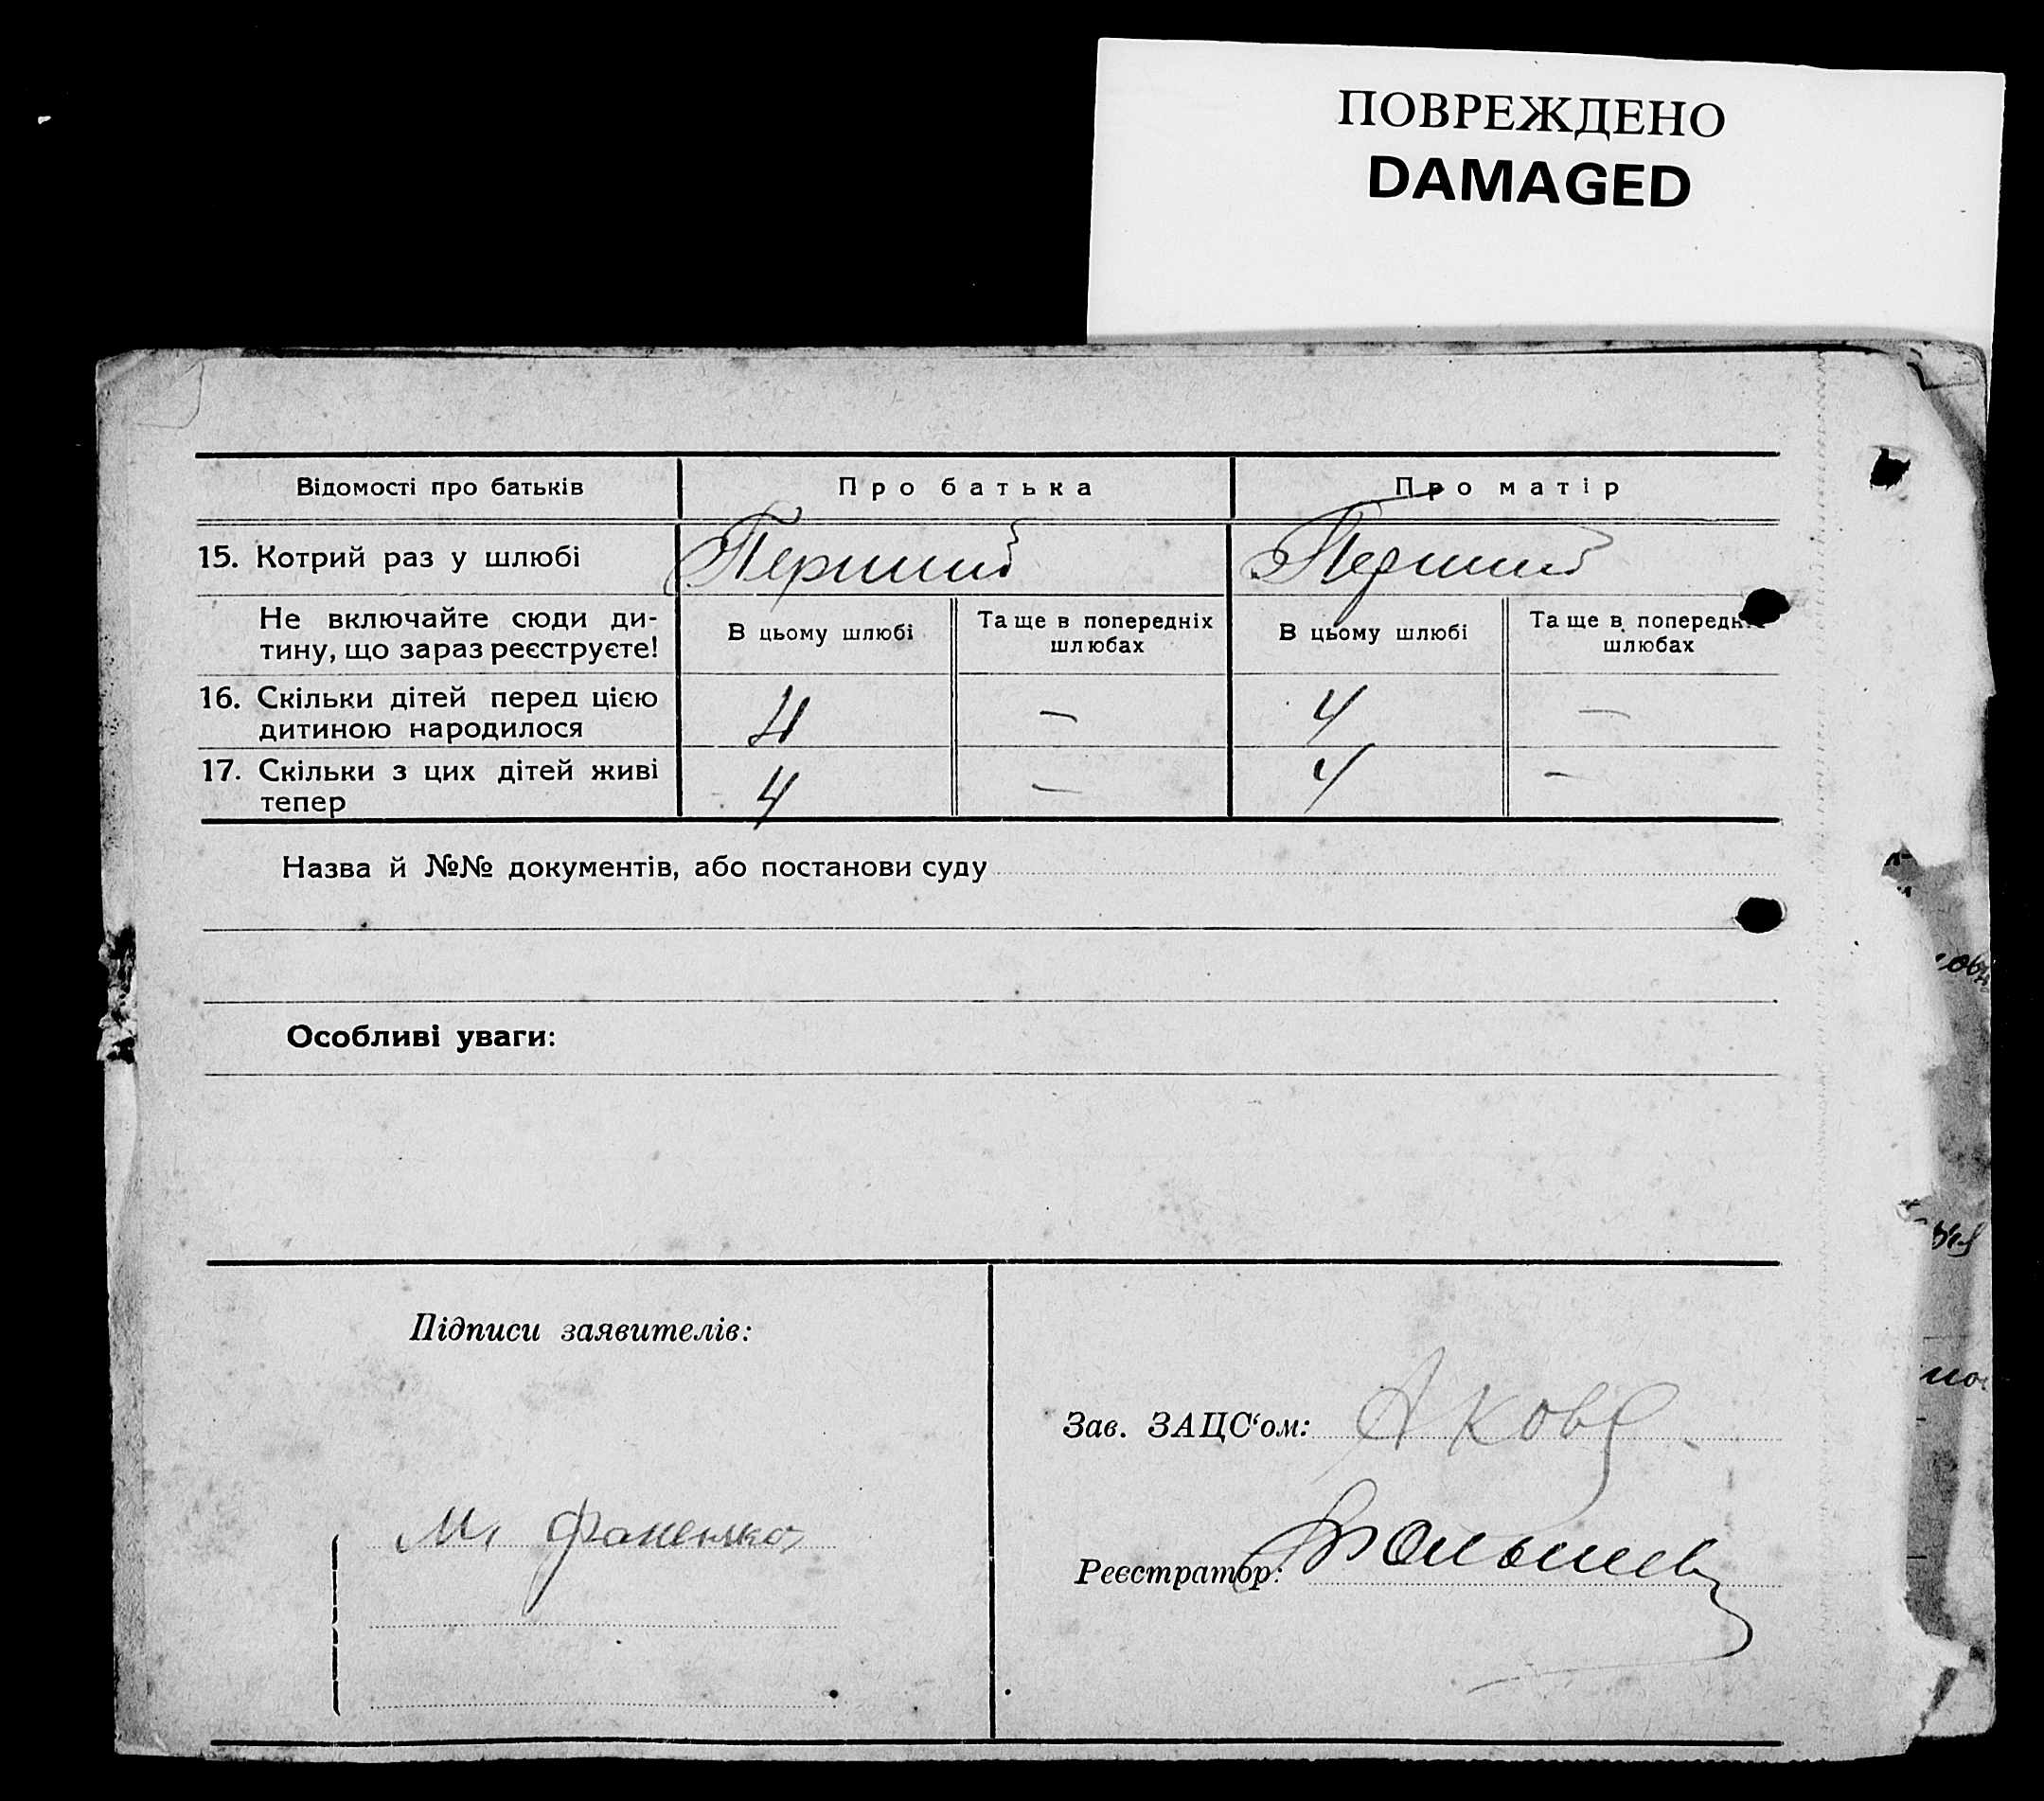 ПОВРЕЖДЕНО
DAMAGED
Відомості про батьків
Про батька
Про матір
15. Котрий раз у шлюбі
Перший
Перший
Не включайте сюди ди-
тину, що зараз реєструєте!
В цьому шлюбі
Та ще в попередніх
шлюбах
В цьому шлюбі
Та ще в попередніх
шлюбах
16. Скільки дітей перед цією
дитиною народилося
4
—
4
—
17. Скільки з цих дітей живі
тепер
4
—
4
—
Назва й №№ документів, або постанови суду
Особливі уваги:
Підписи заявителів:
Зав. ЗАЦС‘ом:
М. Фаненко
Реєстратор: